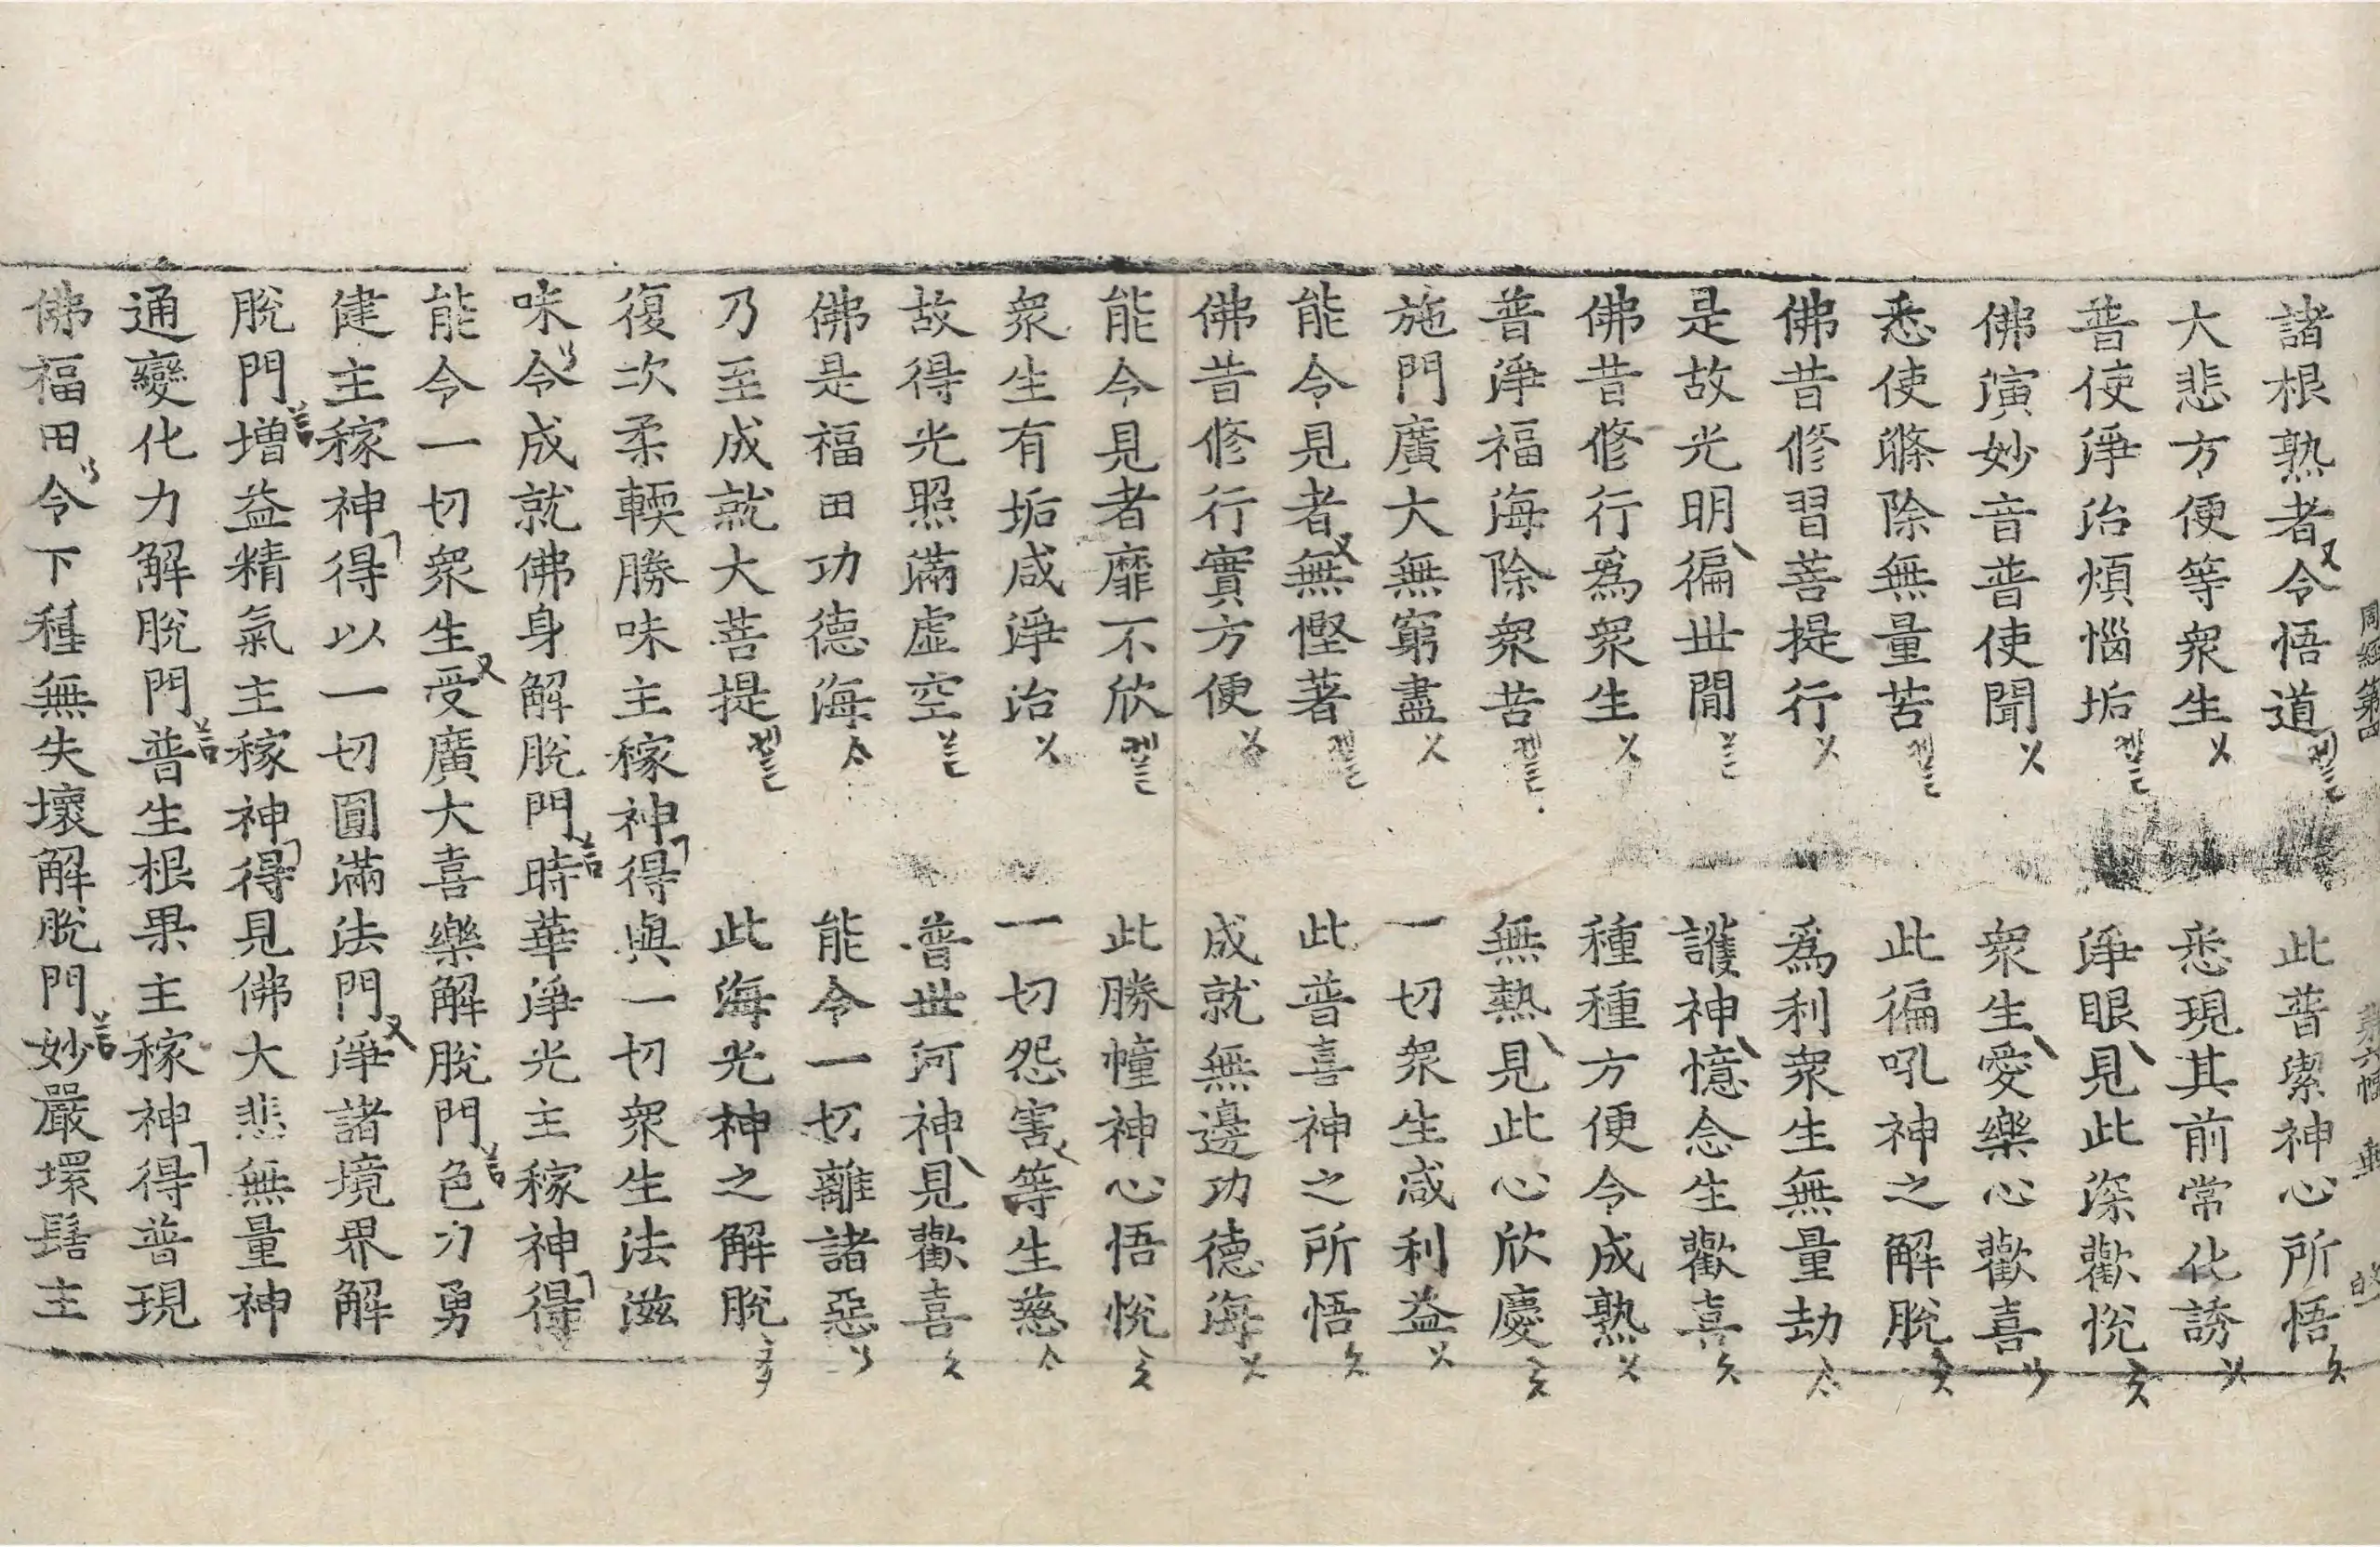 周經第四 第六幅
諸根熟者令悟道 此普潔神心所悟
大悲方便等衆生 悉現其前常化誘
普使淨治煩惱垢 淨眼見此深歡悅
佛演妙音普使聞 衆生愛樂心歡喜
悉使滌除無量苦 此徧吼神之解脫
佛昔修習菩提行 爲利衆生無量劫
是故光明徧世間 護神憶念生歡喜
佛昔修行爲衆生 種種方便令成熟
普淨福海除衆苦 無熱見此心欣慶
施門廣大無窮盡 一切衆生咸利益
能令見者無慳著 此普喜神之所悟
佛昔修行實方便 成就無邊功德海
能令見者靡不欣 此勝幢神心悟悅
衆生有垢咸淨治 一切怨害等生慈
故得光照滿虛空 普世河神見歡喜
佛是福田功德海 能令一切離諸惡
乃至成就大菩提 此海光神之解脫
復次柔輭勝味主稼神得與一切衆生法滋
味令成就佛身解脫門時華淨光主稼神得
能令一切衆生受廣大喜樂解脫門色力勇
健主稼神得以一切圓滿法門淨諸境界解
脫門增益精氣主稼神得見佛大悲無量神
通變化力解脫門普生根果主稼神得普現
佛福田令下種無失壞解脫門妙嚴環髻主